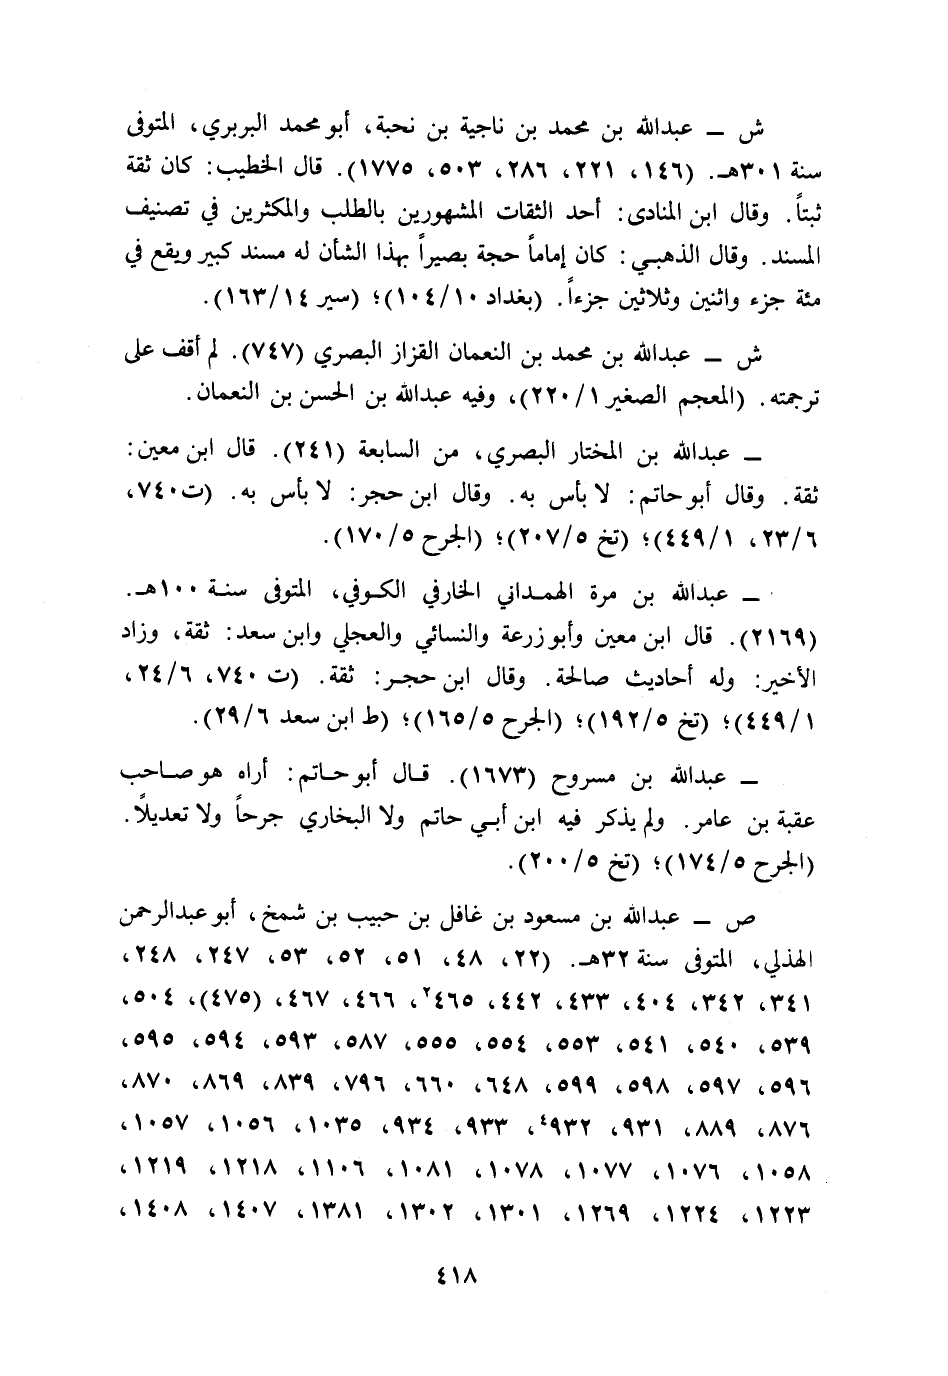 ش ــ عبدالله بن محمد بن ناجية بن نحبة، أبو محمد البربري، المتوفى
سنة ٣٠١هـ. (١٤٦، ٢٢١، ٢٨٦، ٥٠٣، ١٧٧٥). قال الخطيب: كان ثقة
ثبتاً. وقال ابن المنادى: أحد الثقات المشهورين بالطلب والمكثرين في تصنيف
المسند. وقال الذهبي: كان إماماً حجة بصيراً بهذا الشأن له مسند كبير ويقع في
مئة جزء واثنين وثلاثين جزءاً. (بغداد ١٠٤/١٠)؛ (سير ١٦٣/١٤).
ش ــ عبدالله بن محمد بن النعمان القزاز البصري (٧٤٧). لم أقف على
ترجمته. (المعجم الصغير ٢٢٠/١)، وفيه عبدالله بن الحسن بن النعمان.
ــ عبدالله بن المختار البصري، من السابعة (٢٤١). قال ابن معين:
ثقة. وقال أبو حاتم: لا بأس به. وقال ابن حجر: لا بأس به. (ت ٧٤٠،
٢٣/٦، ٤٤٩/١)؛ (تخ ٢٠٧/٥)؛ (الجرح ١٧٠/٥).
ــ عبدالله بن مرة الهمداني الخارفي الكوفي، المتوفى سنة ١٠٠هـ.
(٢١٦٩). قال ابن معين وأبو زرعة والنسائي والعجلي وابن سعد: ثقة، وزاد
الأخير: وله أحاديث صالحة. وقال ابن حجر: ثقة. (ت ٧٤٠، ٢٤/٦،
٤٤٩/١)؛ (تخ ١٩٢/٥)؛ (الجرح ١٦٥/٥)؛ (ط ابن سعد ٢٩/٦).
ــ عبدالله بن مسروح (١٦٧٣). قال أبو حاتم: أراه هو صاحب
عقبة بن عامر. ولم يذكر فيه ابن أبي حاتم ولا البخاري جرحاً ولا تعديلاً.
(الجرح ١٧٤/٥)؛ (تخ ٢٠٠/٥).
ص ــ عبدالله بن مسعود بن غافل بن حبيب بن شمخ، أبو عبدالرحمن
الهذلي، المتوفى سنة ٣٢هـ. (٢٢، ٤٨، ٥١، ٥٢، ٥٣، ٢٤٧، ٢٤٨،
٣٤١، ٣٤٢، ٤٠٤، ٤٣٣، ٤٤٢، ٤٦٥٢، ٤٦٦، ٤٦٧، (٤٧٥)، ٥٠٤،
٥٣٩، ٥٤٠، ٥٤١، ٥٥٣، ٥٥٤، ٥٥٥، ٥٨٧، ٥٩٣، ٥٩٤، ٥٩٥،
٥٩٦، ٥٩٧، ٥٩٨، ٥٩٩، ٦٤٨، ٦٦٠، ٧٩٦، ٨٣٩، ٨٦٩، ٨٧٠،
٨٧٦، ٨٨٩، ٩٣١، ٩٣٢٤، ٩٣٣، ٩٣٤، ١٠٣٥، ١٠٥٦، ١٠٥٧،
١٠٥٨، ١٠٧٦، ١٠٧٧، ١٠٧٨، ١٠٨١، ١١٠٦، ١٢١٨، ١٢١٩،
١٢٢٣، ١٢٢٤، ١٢٦٩، ١٣٠١، ١٣٠٢، ١٣٨١، ١٤٠٧، ١٤٠٨،
٤١٨